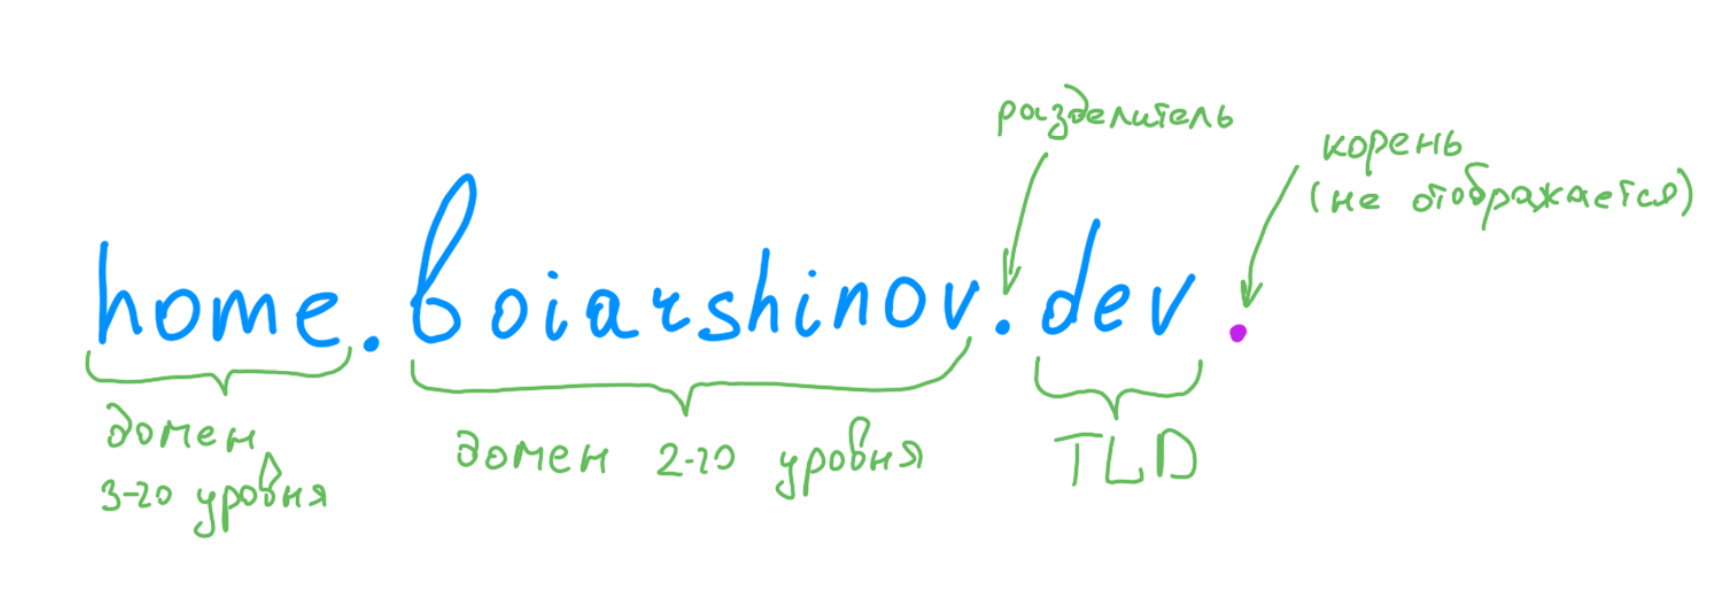 разделитель
корень
(не отображается)
home.boiarshinov.dev.
домен
3-го уровня
домен 2-го уровня
TLD